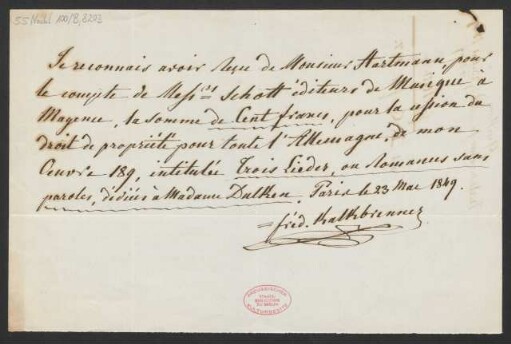 55 Nachl 100/B, 8202
Je reconnais avoir reçu de Monsieur Hartmann, pour
le compte de Messrs Schott éditeurs de Musique à
Mayence, la somme de Cent francs, pour la cession du
droit de propriété pour toute l'Allemagne, de mon
Oeuvre 189, intitulée Trois Lieder, ou Romances sans
paroles, dédiées à Madame Dulken. Paris le 23 Mai 1849.
fréd. Kalkbrenner